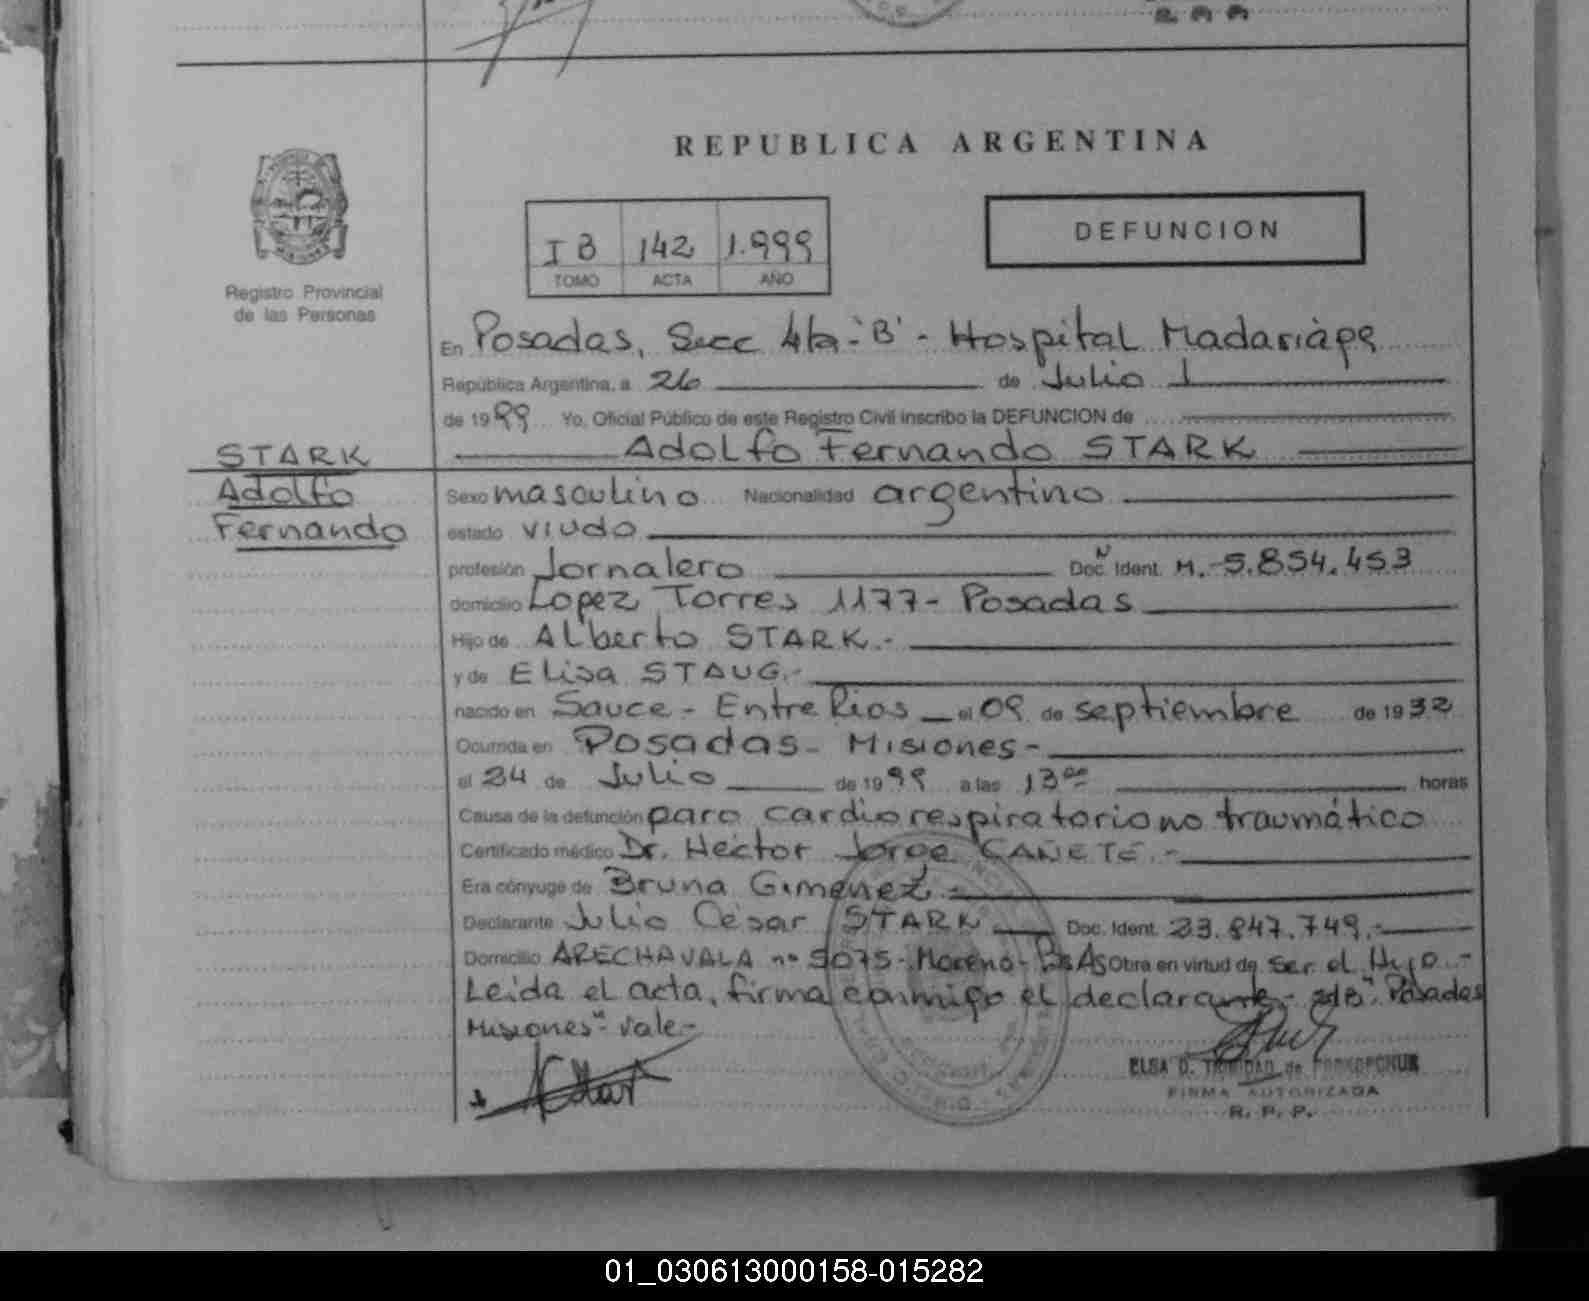 REPUBLICA ARGENTINA
Registro Provincial
de las Personas
I B 142 1.999
TOMO ACTA AÑO
DEFUNCION
En Posadas, Secc 4ta-"B"- Hospital Madariaga
República Argentina, a 26 de Julio
de 1999 Yo, Oficial Público de este Registro Civil inscribo la DEFUNCION de
Adolfo Fernando STARK
STARK
Adolfo
Fernando
Sexo masculino Nacionalidad argentino
estado viudo
profesión Jornalero Doc. Ident. M.-5.854.453
domicilio Lopez Torres 1177- Posadas
Hijo de Alberto STARK.-
y de Elisa STAUG.-
nacido en Sauce - Entre Rios el 09 de septiembre de 1932
Ocurrida en Posadas- Misiones-
el 24 de Julio de 1999 a las 13 00 horas
Causa de la defunción paro cardiorespiratorio no traumático
Certificado médico Dr. Hector Jorge CAÑETE.-
Era cónyuge de Bruna Gimenez.-
Declarante Julio César STARK Doc. Ident. 23.847.749.-
Domicilio ARECHAVALA nº 5075- Moreno- Bs As Obra en virtud de ser el Hijo.-
Leida el acta, firma conmigo el declarante- Posadas
Misiones" vale-
ELSA D. TRINIDAD de
FIRMA AUTORIZADA
R. P. P.
01_030613000158-015282